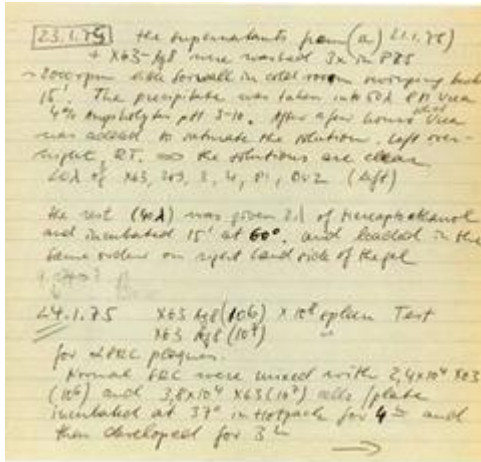 23.1.75 the supernatants from (a) 21.1.75)
+ X63-Ag8 were washed 3x in PBS
~ 2000 rpm in cold room
15'. The precipitate was taken into 50λ 8M Urea
4% Ampholytes pH 3-10. After a few hours Urea
was added to saturate the solution. Left over-
night, RT. the solutions are clear
20λ of X63, 3, 4, P1, (left)
the rest (40λ) was given 2λ of Mercaptoethanol
and incubated 15' at 60°. and loaded in the
same order on right hand side of the gel
24.1.75 X63 Ag8 (10⁶) x 10⁸ spleen Test
X63 Ag8 (10⁷) "
for SRC plaques.
Normal SRC were mixed with 2,4x10⁴ X63
(10⁶) and 3,8x10⁴ X63 (10⁷) cells/plate
incubated at 37° in Hotpack for 4 and
then developed for 3